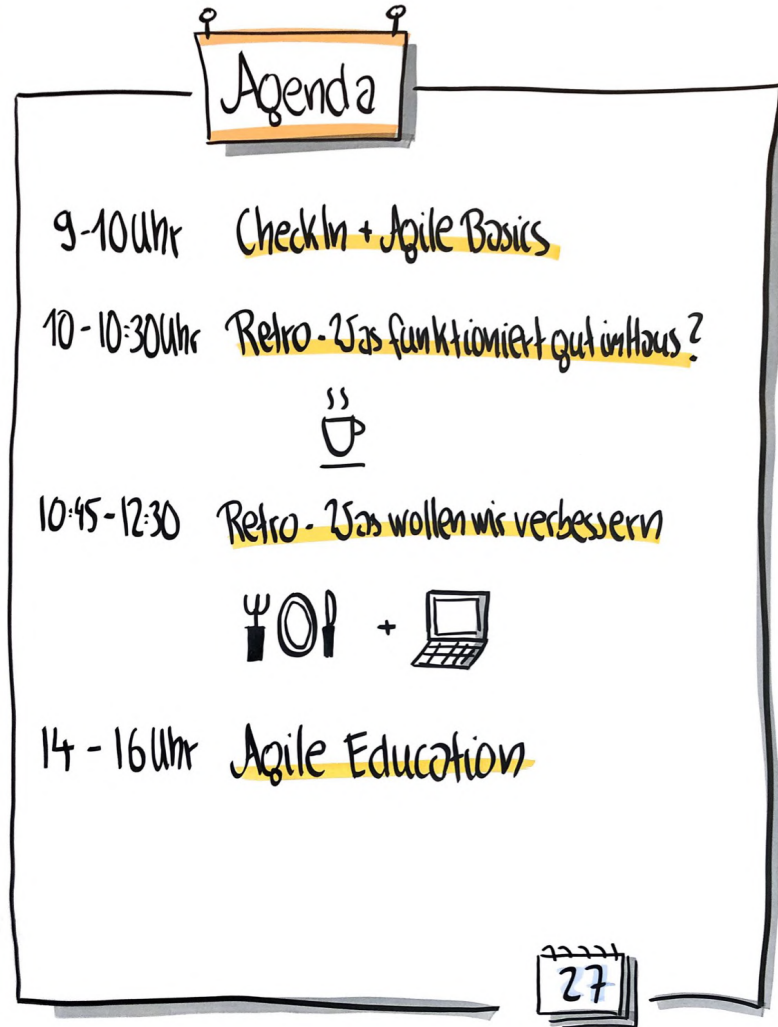 Agenda
9-10 Uhr CheckIn + Agile Basics
10-10:30 Uhr Retro - Was funktioniert gut im Haus?
10:45-12:30 Retro - Was wollen wir verbessern
+
14-16 Uhr Agile Education
27